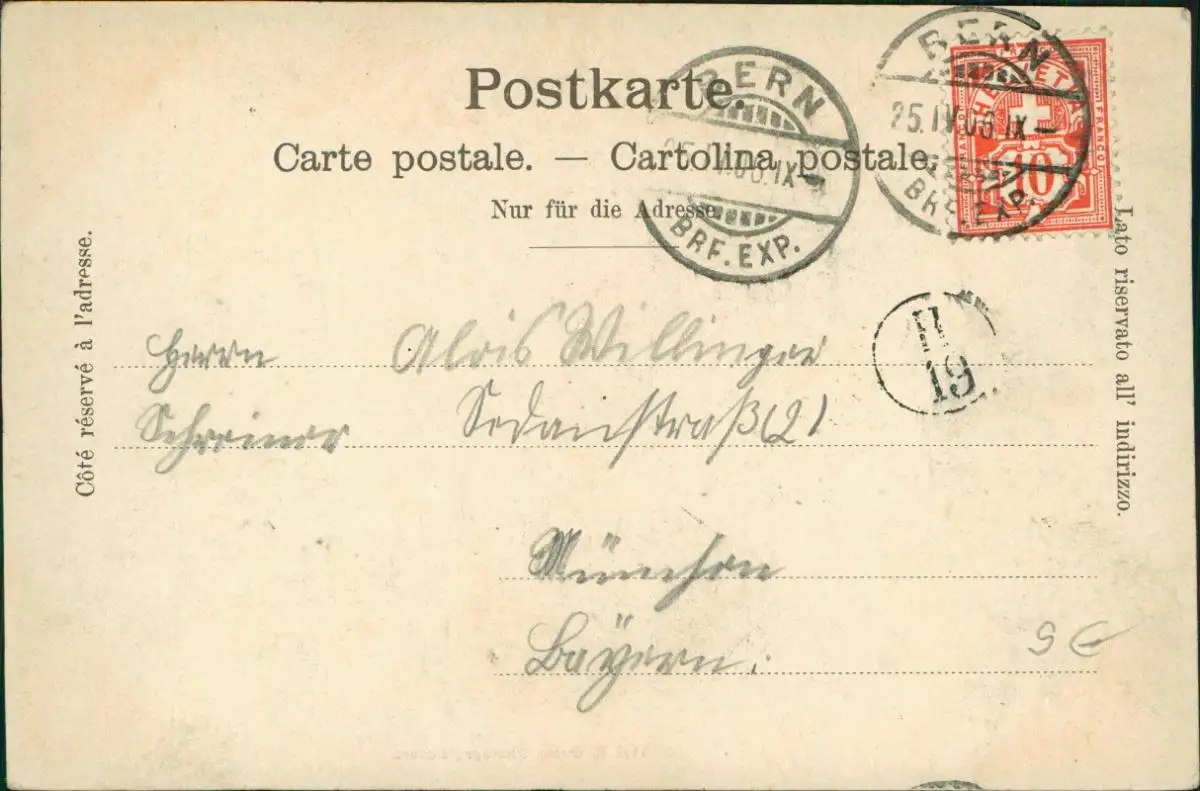 Postkarte.
Carte postale. — Cartolina postale.
Nur für die Adresse.
Côté réservé à l'adresse.
Lato riservato all' indirizzo.
BERN
25.IV.06.IX-
BRF.EXP.
BERN
25.IV.06.IX-
BRF.EXP.
HELVETIA
FRANCO
10
II
19
Herrn Alois Willinger
Schreiner Sedanstraß 21
München
Bayern.
9 €